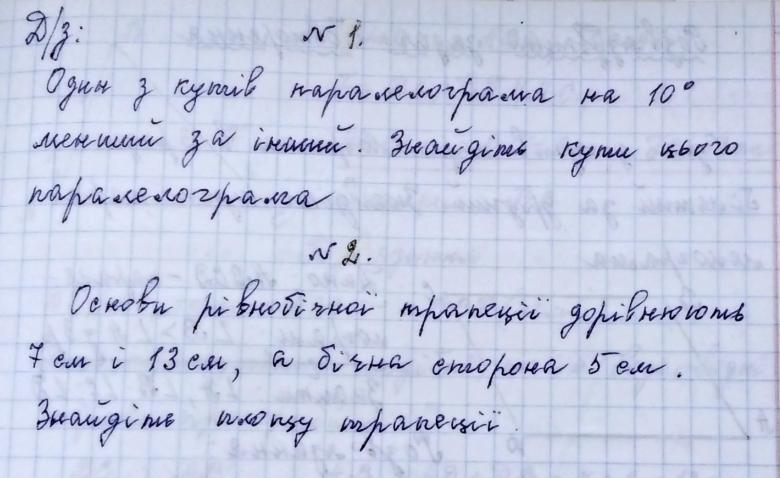 Д/з: № 1.
Один з кутів паралелограма на 10°
менший за інший. Знайдіть кути цього
паралелограма
№ 2.
Основи рівнобічної трапеції дорівнюють
7 см і 13 см, а бічна сторона 5 см.
Знайдіть площу трапеції.